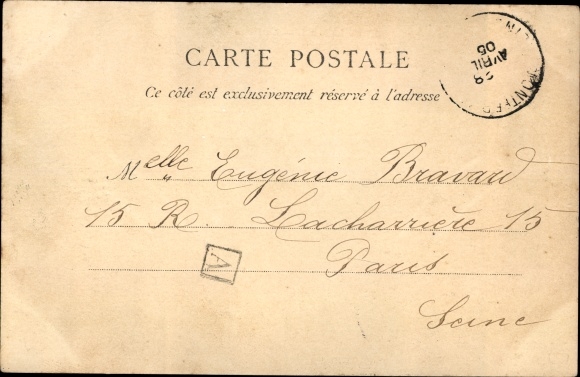 CARTE POSTALE
Ce côté est exclusivement réservé à l'adresse
28
AVRIL
05
Melle Eugénie Bravard
15 R. Lacharrière 15
Paris
Seine